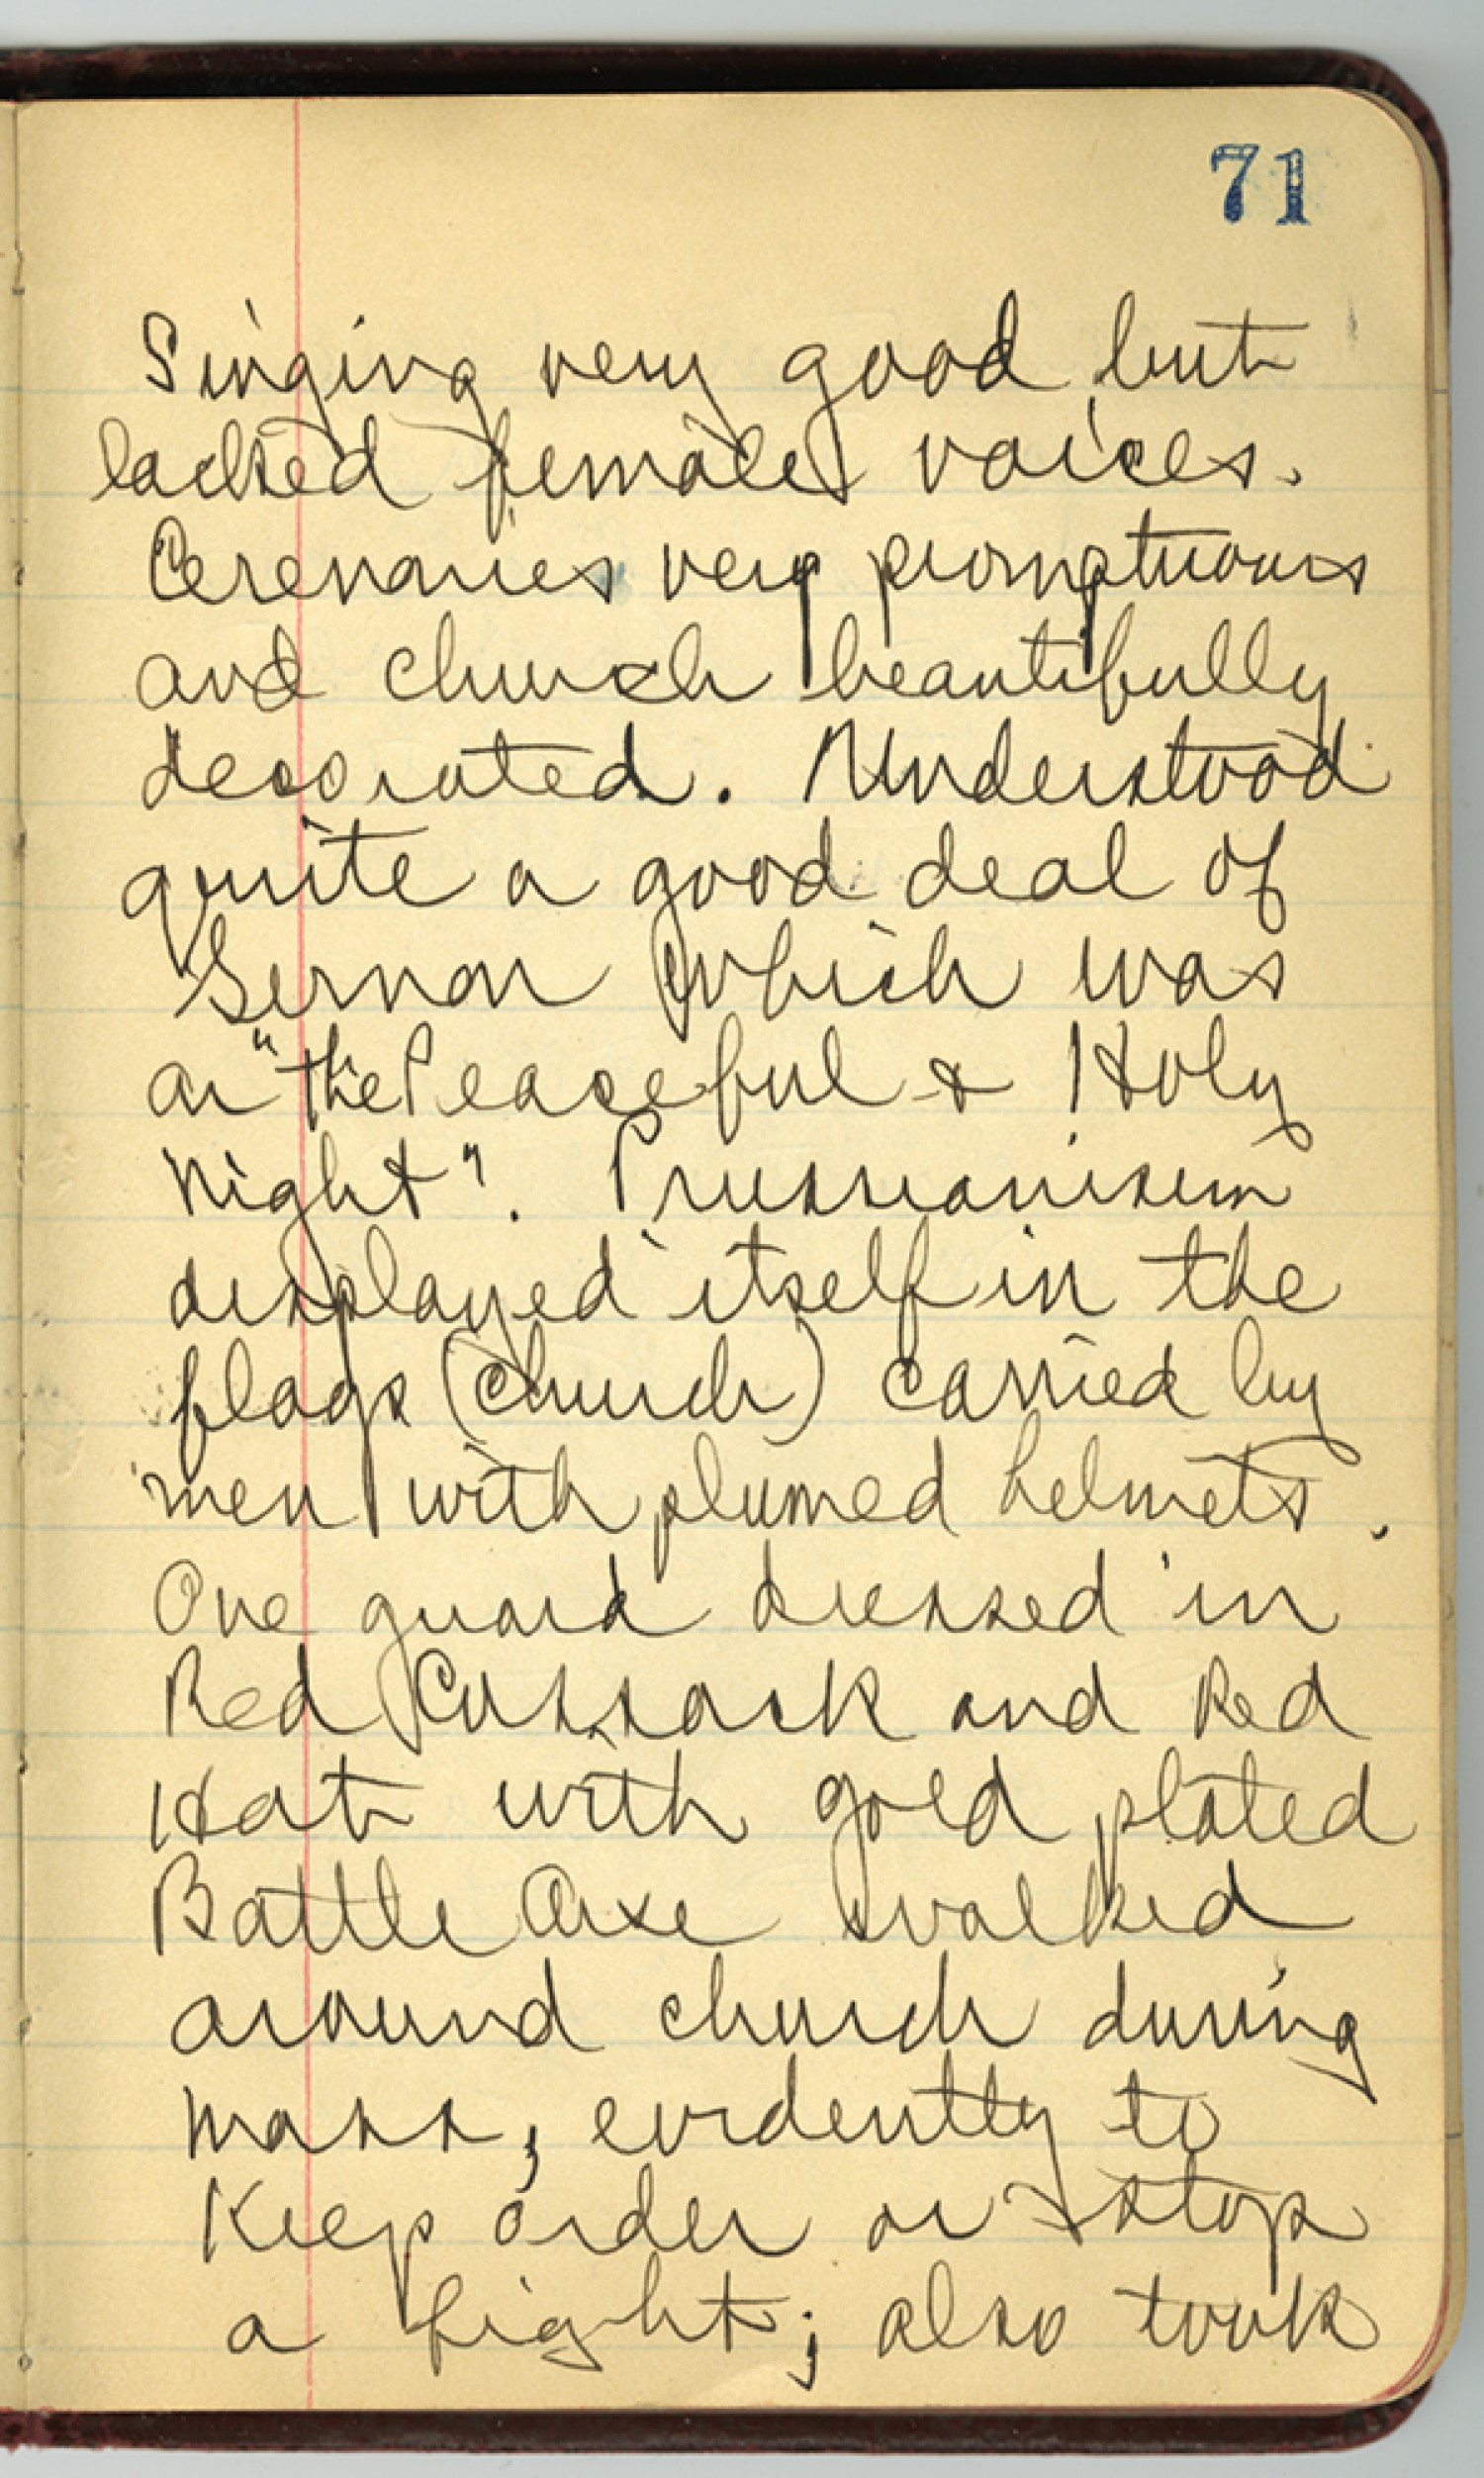 71
Singing very good but
lacked female voices.
Ceremonies very promptuous
and church beautifully
decorated. Understood
quite a good deal of
Sermon which was
on "the Peaceful & Holy
Night". Prussianisum
displayed itself in the
flags (church) carried by
men with plumed helmets.
One guard dressed in
Red Cassack and Red
Hat with gold plated
Battle Axe walked
around church during
mass, evidently to
Keep order or stop
a fight; also took